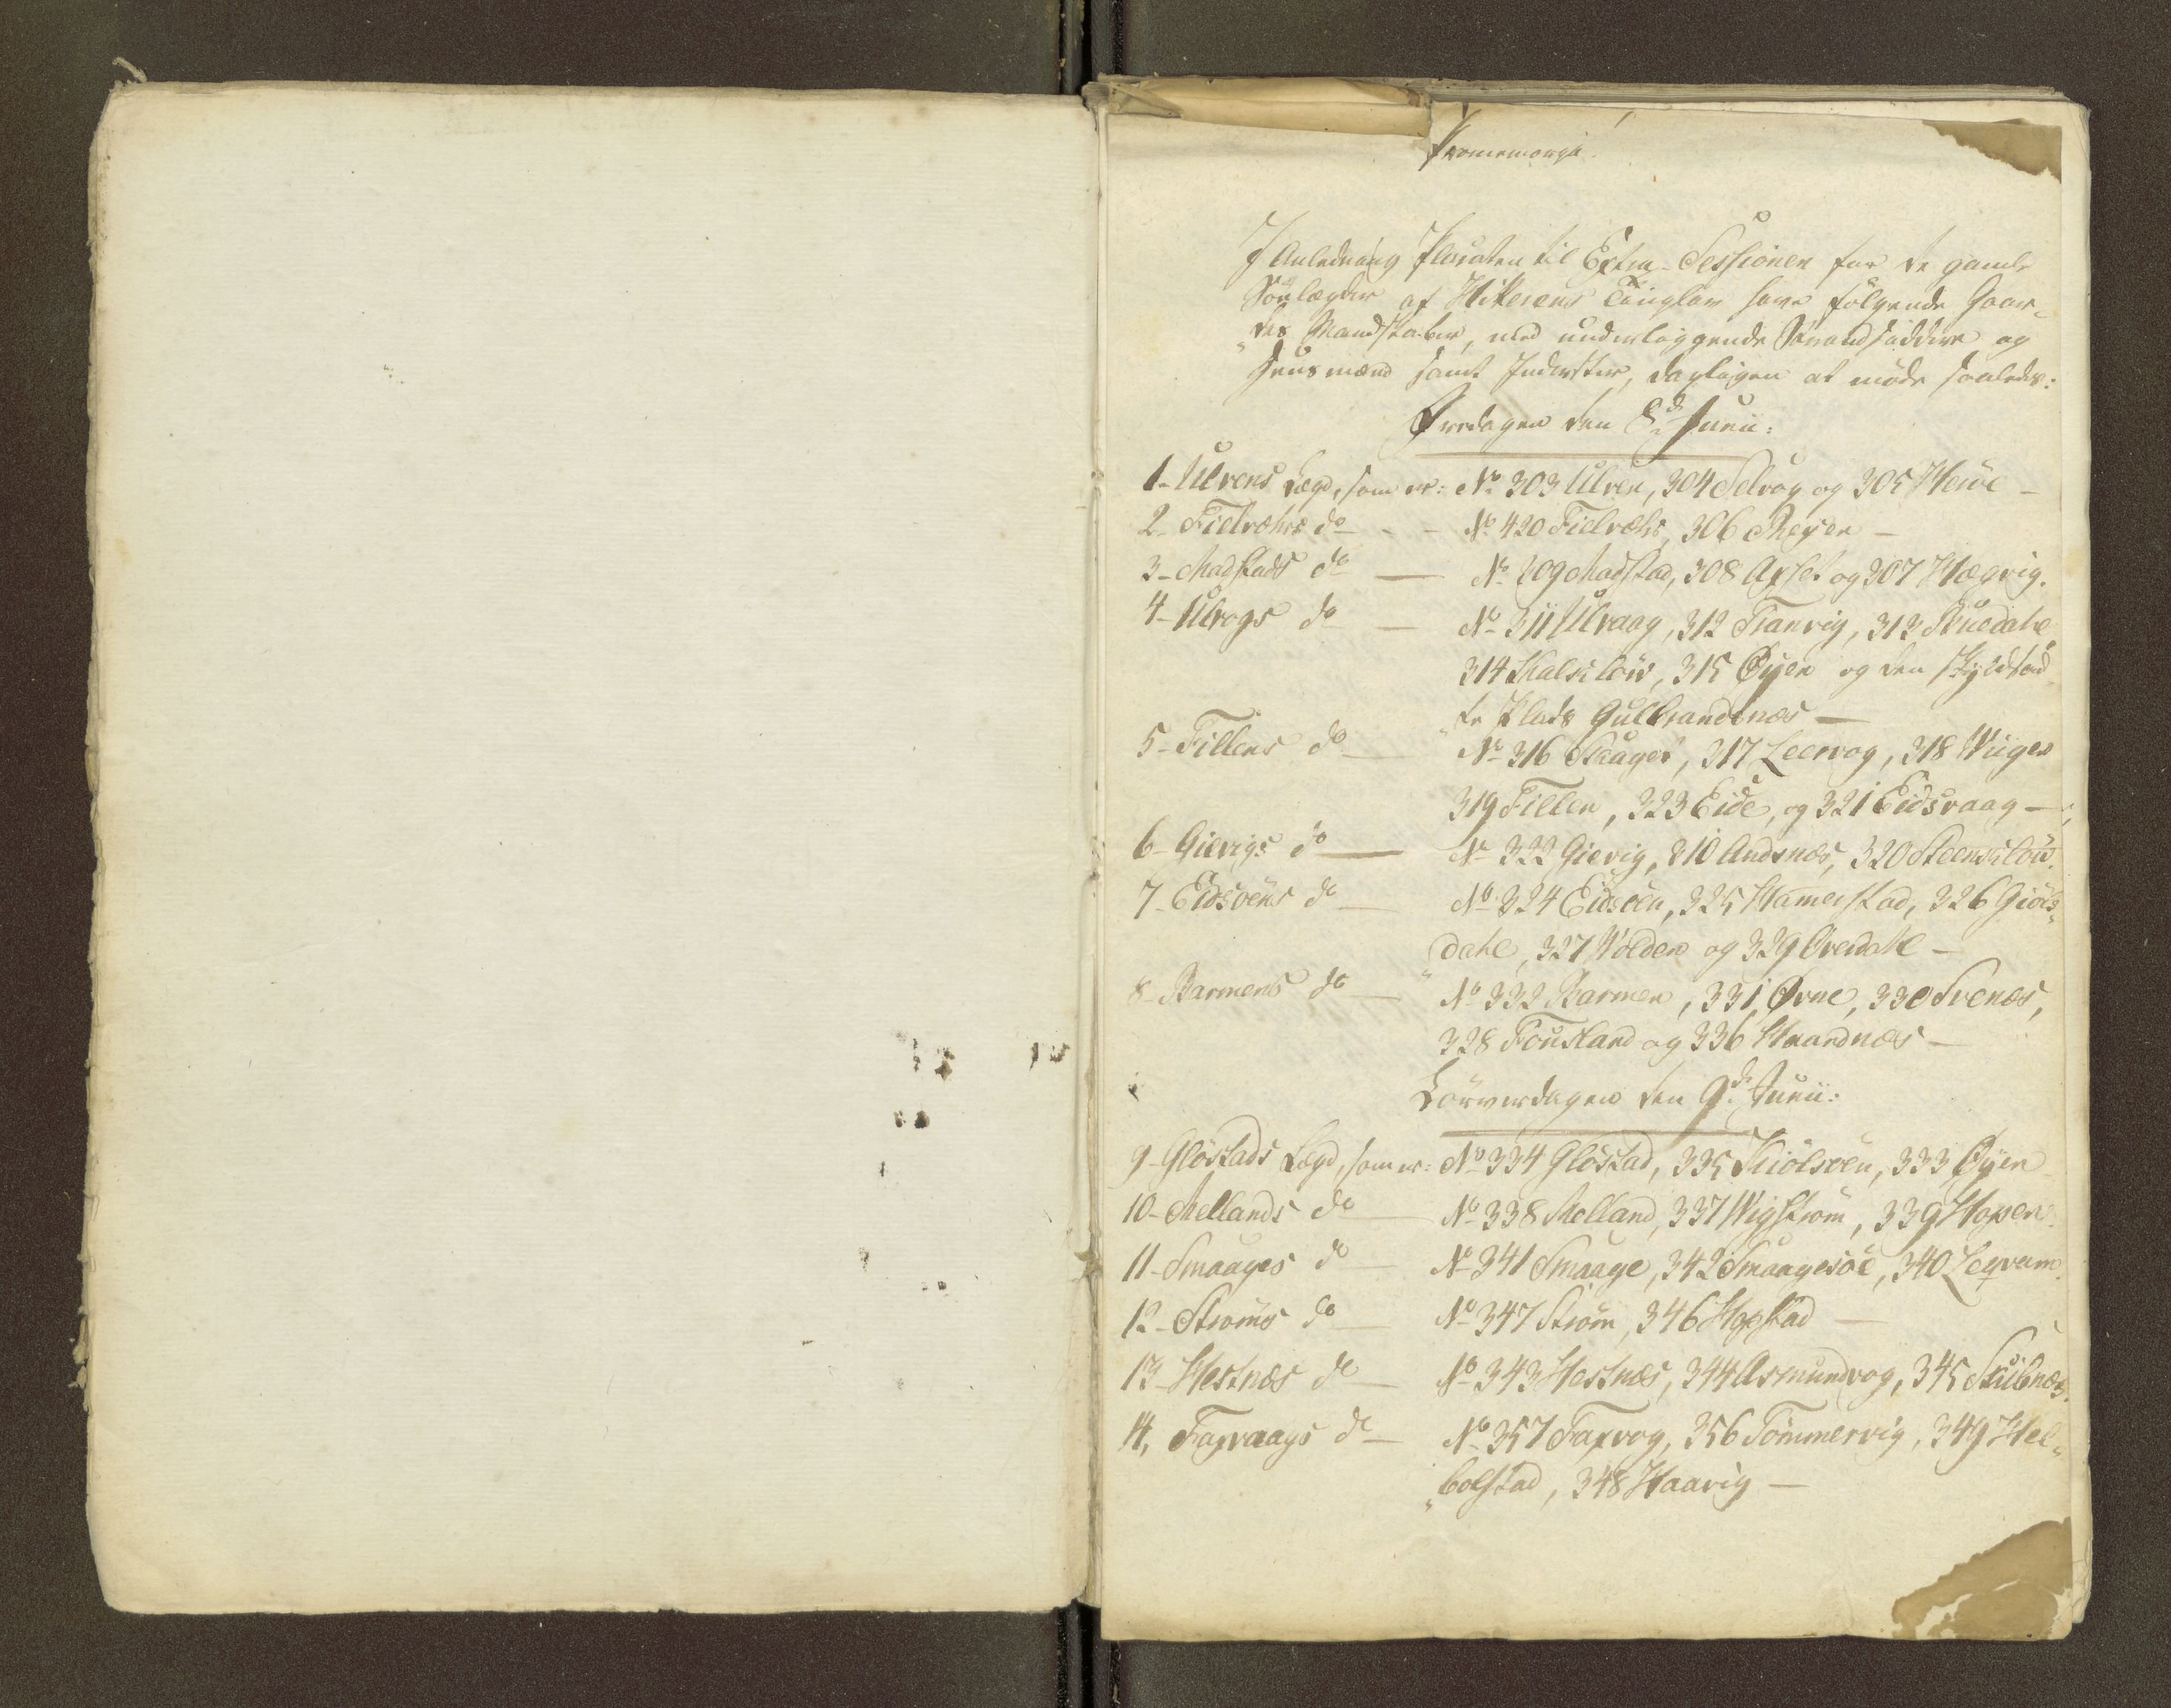 Promemoria
I Anledning Placaten til Extra-Sessionen har de gamle
Söelægder af Hitterens Tinglav have følgende Gaar„
„des Mandskaber, med underliggende Strandsiddere og
Huusmænd samt Inderster, dagligen at møde saaledes:
Fredagen den 8de Junii:
1- Ulvens Lægd, som er: No 303 Ulven, 304 Selvog og 305 Hevöe –
2- Fielværs do – – No 420 Fielvær, 306 Meyen –
3- Madstads do — No 309 Madstad, 308 Axset og 307 Hægvig.
4- Ulvogs do — No 311 Ulvaag, 312 Tranvig, 313 Stuedahl
314 Kalklöw, 315 Øyen og den skyldsad„
„te Plads Gulbrandsnæs —
5- Fillens do — No 316 Skaget, 317 Leervog, 318 Wiigen
319 Fillen, 323 Eide, og 321 Eidsvaag —
6- Gievigs do — No 322 Gievig, 310 Andsnæs, 320 Steensklöw.
7- Eidsöens do — No 324 Eidsöen, 325 Hamerstad, 326 Giös„
„dahl, 327 Volden og 329 Overdahl —
8- Barmens do — No 332 Barmen, 331 Ørne, 330 Svenæs,
328 Fousland og 336 Strandnæs —
Löverdagen den 9de Junii:
9- Glöstads Lægd, som er: No 334 Glöstad, 335 Kiölsöen, 333 Øyen
10- Mellands do — No 338 Melland, 337 Wigström, 339 Hopen.
11- Smaages do — No 341 Smaage, 342 Smaagesöe, 340 Leqvam.
12- Ströms do — No 347 Ström, 346 Hopstad —
13- Hestnæs do — No 343 Hestnæs, 344 Asmundvog, 345 Stubnæs.
14, Faxvaags do — No 357 Faxvog, 356 Tömmervig, 349 Hel„
„bolstad, 348 Haavig —